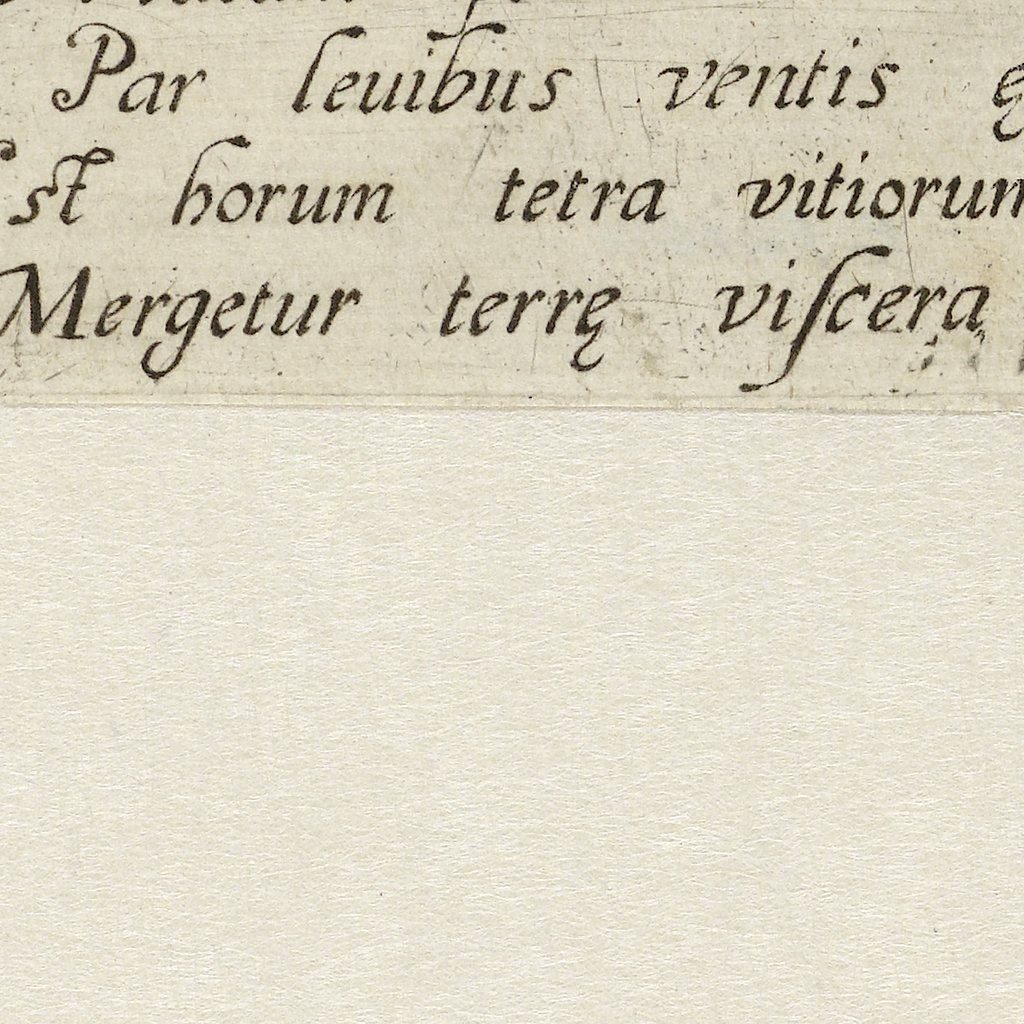 Par leuibus ventis
st horum tetra vitiorum
Mergetur terrę viſcera